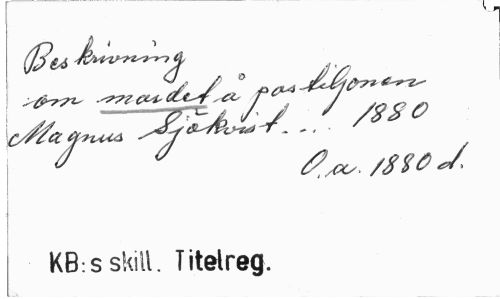 Beskrivning
om mordet å postiljonen
Magnus Sjökvist.... 1880
O.a. 1880 d.
KB:s skill. Titelreg.